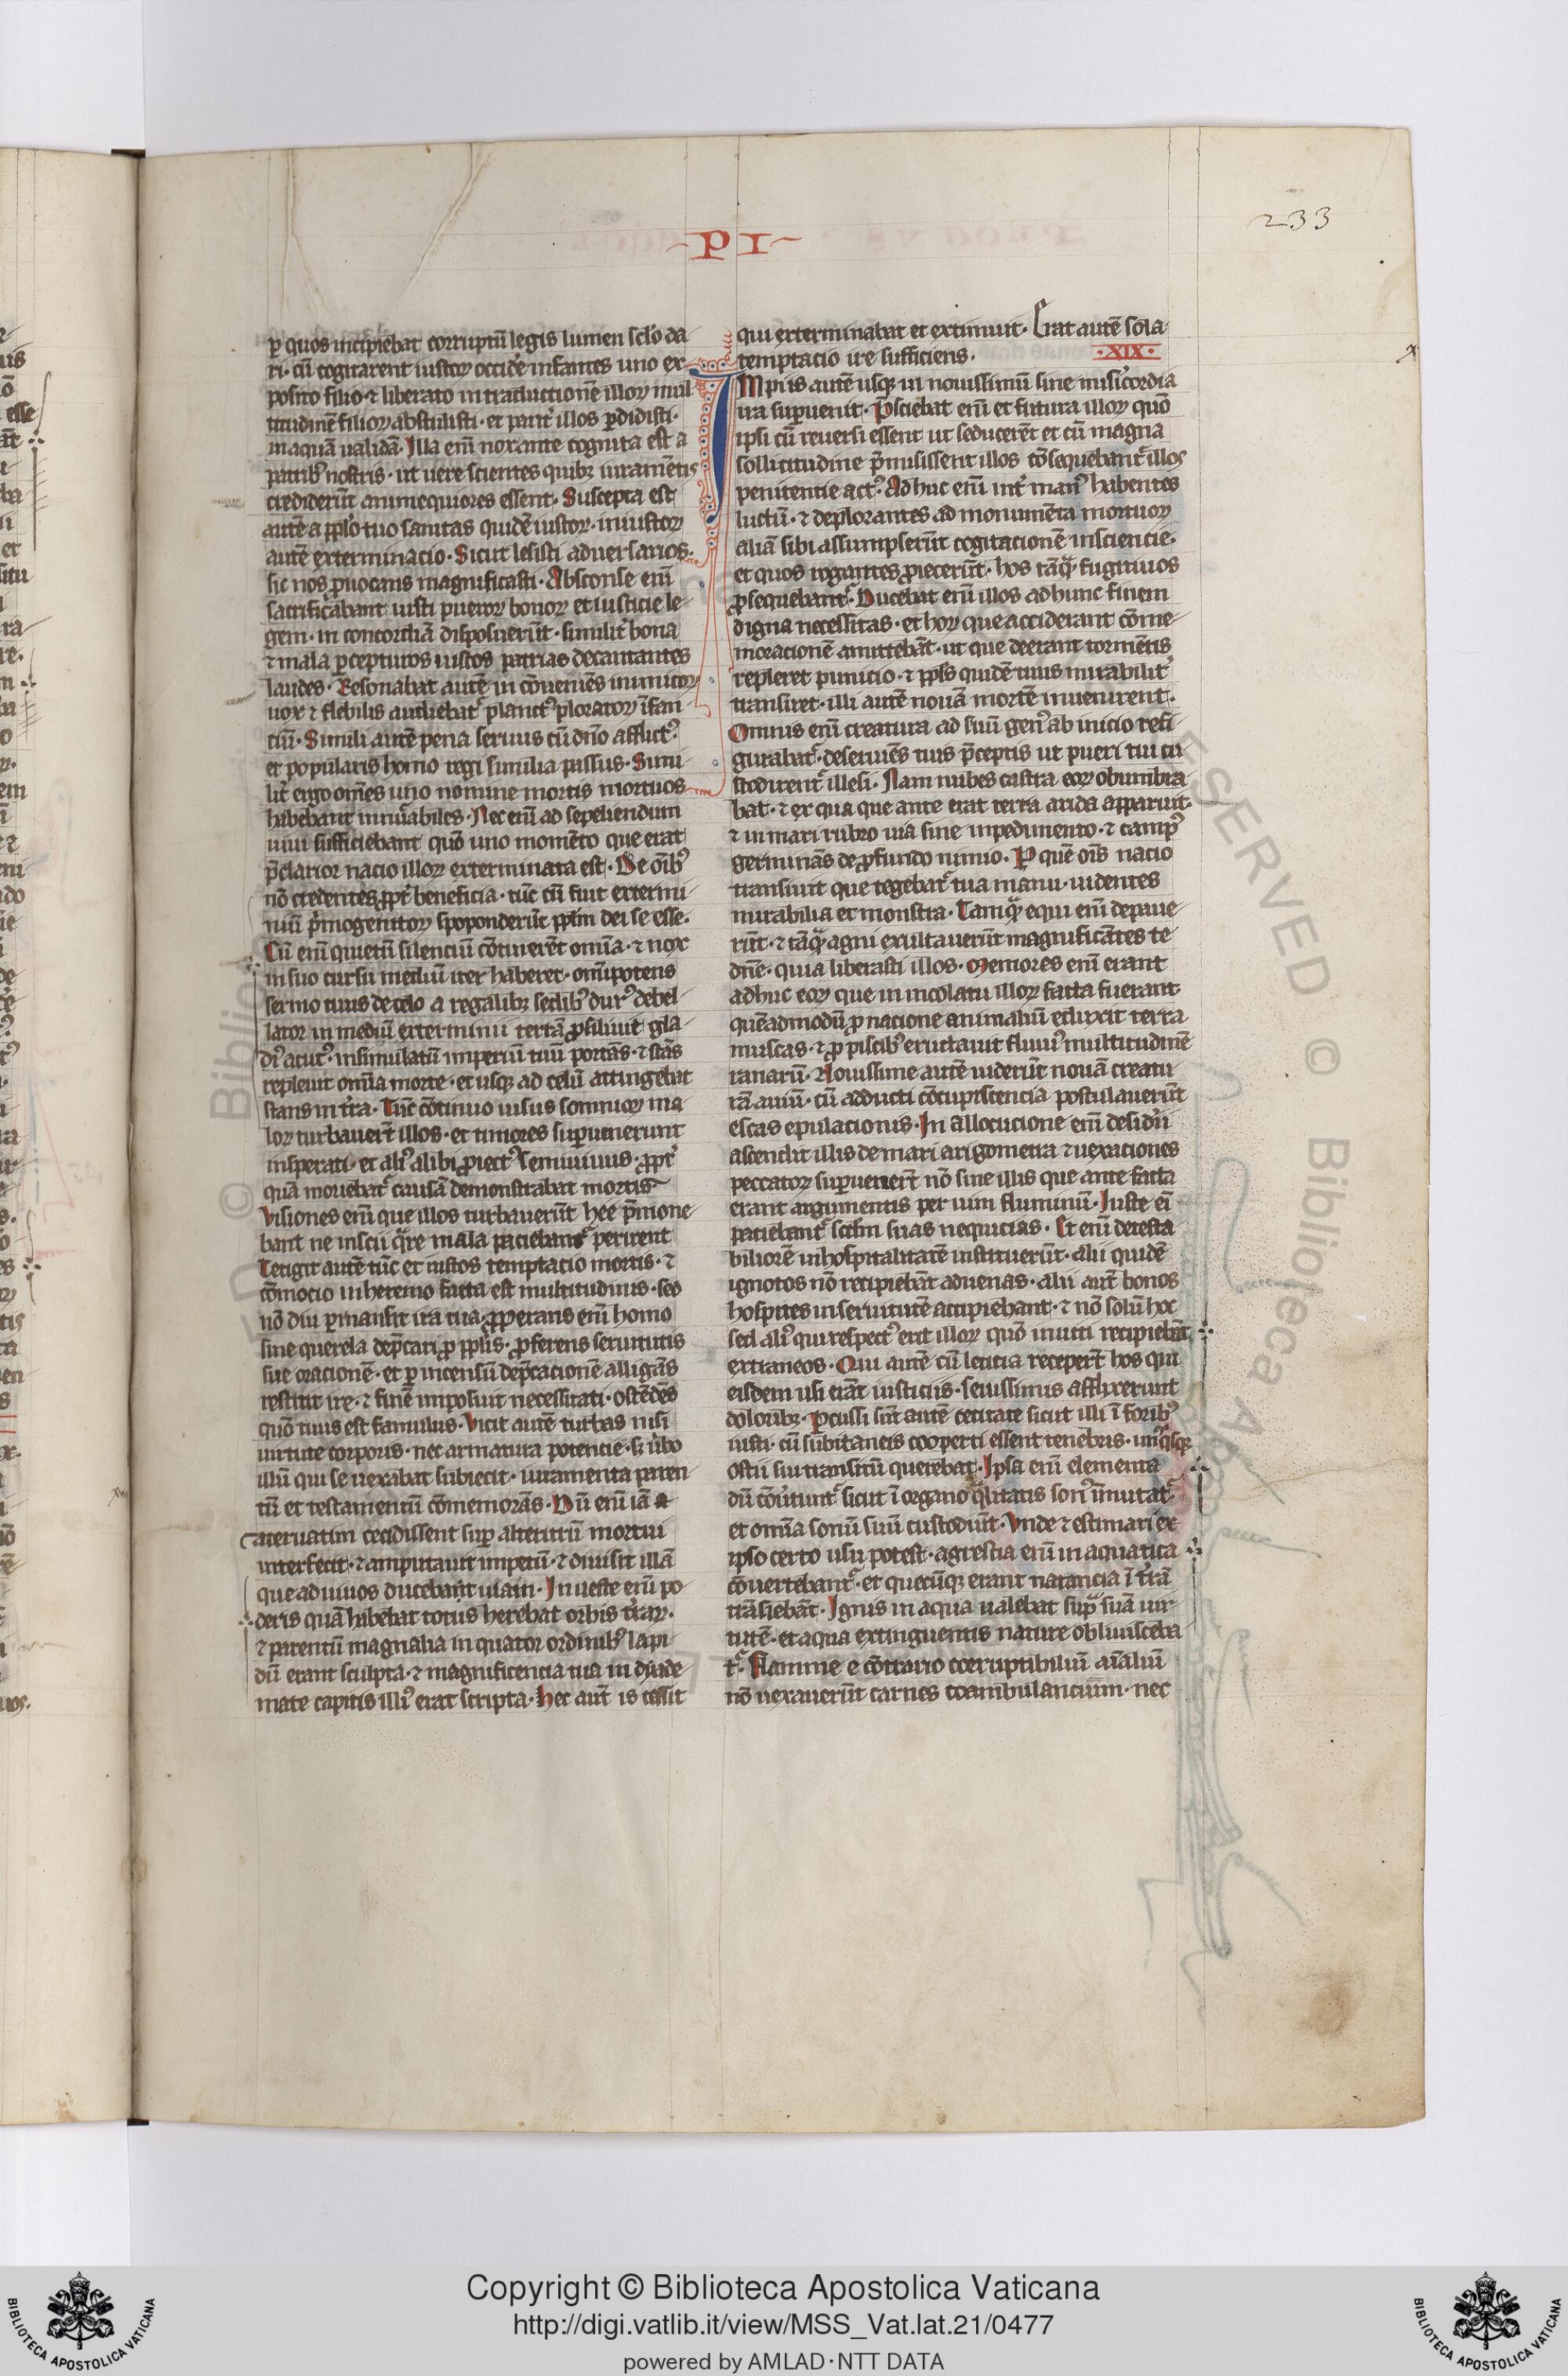 233
PI
ꝑ quos incipiebat corruptū legis lumen sc̄lo da
ri· cū cogitarent iustoꝝ occidẽ infantes uno ex
posito filio ⁊ liberato in traductionē illoꝝ mul
titudinē filioꝝ abstulisti· et parit̾ illos ꝑdidisti·
in aquā ualidā· Illa em̄ nox ante cognita est a
patribꝫ nostris· ut uere scientes quibꝫ iuramētis
crediderūt animequiores essent· Suscepta est
autē a pp̄lo tuo sanitas quidē iustoꝝ· iniustoꝝ
autē exterminacio· Sicut lesisti aduersarios·
sic nos ꝓuocans magnificasti· Absconse em̄
sacrificabant iusti pueroꝝ bonoꝝ et iusticie le
gem· in concordiā disposuerūt· similit̾ bona
⁊ mala ꝑcepturos iustos patrias decantantes
laudes· Resonabat autē in cōueniēs inimicoꝝ
uox ⁊ flebilis audiebat̾ planctꝰ ploratoꝝ īfan
ciū· Simili autē pena seruus cū dn̄o afflictꝰ·
et popularis homo regi similia passus· Simi
lit̾ ergo om̄es uno nomine mortis mortuos
habebant innūabiles· Nec em̄ ad sepeliendum
uiui sufficiebant quō uno momēto que erat
p̄clarior nacio illoꝝ exterminata est· De oībꝰ
nō credentes ꝓpt̾ beneficia· tūc cū fuit extermi
niū p̄mogenitoꝝ spoponderūt pp̄lm dei se esse·
Cū em̄ quietū silenciū cōtinerēt omīa· ⁊ nox
in suo cursu mediū iter haberet· omīpotens
sermo tuus de celo a regalibꝫ sedibꝰ durꝰ debel
lator in mediū exterminii terrā ꝓsiliuit gla
diꝰ acutꝰ· insimulatū imperiū tuū portās· ⁊ stās
repleuit omīa morte· et usqꝫ ad celū attingebat
stans in t̾ra· Tūc cōtinuo uisus somnioꝝ ma
loꝝ turbauer̄t illos· et timores suꝑuenerunt
insperati· et aliꝰ alibi ꝓiectꝰ semiuiuus· ꝓpt̾
quā mouebat̾ causā demonstrabat mortis
Visiones em̄ que illos turbauerūt hee p̄mone
bant ne inscii q̄re mala paciebant̾ perirent
Tetigit autē tūc et iustos temptacio mortis· ⁊
cōmocio in heremo facta est multitudinis· sed
nō diu ꝑmansit ira tua· ꝓperans em̄ homo
sine querela dep̄cari ꝓ pp̄lis· ꝓferens seruitutis
sue oracionē· et ꝑ incensū dep̄cacionē alligās
restitit ire· ⁊ finē imposuit necessitati· ostēdēs
quō tuus est famulus· Vicit autē turbas nō
uirtute corporis· nec armatura potencie· s; ūbo
illū qui se uexabat subiecit· iuramenta paren
tū et testamentū cōmemorās· Dū em̄ iā
aceruatim cecidissent suꝑ alterutrū mortui
interfecit· ⁊ amputauit impetū· ⁊ diuisit illā
que ad uiuos ducebant uiam· In ueste em̄ po
deris quā habebat totus herebat orbis t̾raꝝ·
⁊ parentū magnalia in quator ordinibꝰ lapi
dū erant sculpta· ⁊ magnificencia tua in dyade
mate capitis illiꝰ erat scripta· Hec aut̄ is cessit
qui exterminabat et extimuit· Erat autē sola
temptacio ire sufficiens·
·XIX·
IMpiis autē usqꝫ in nouissimū sine mis̄icordia
ira suꝑuenit· P̄sciebat em̄ et futura illoꝝ quō
ipsi cū reuersi essent ut seducerēt et cū magna
sollicitudine p̄misissent illos cōsequebant̾ illos
penitentie actꝰ· Adhuc em̄ int̾ manꝰ habentes
luctū· ⁊ deplorantes ad monumēta mortuoꝝ
aliā sibi assumpserūt cogitacionē insciencie·
et quos rogantes ꝓiecerūt· hos tāq̄ fugitiuos
ꝑsequebant̾· Ducebat em̄ illos ad hunc finem
digna necessitas· et hoꝝ que acciderant cōme
moracionē amittebāt· ut que deerant tormētis
repleret punicio· ⁊ pp̄ls quidē tuus mirabilit̾
transiret· illi autē nouā mortē inuenirent·
Omnis em̄ creatura ad suū genꝰ ab inicio refi
gurabat̾· deseruiēs tuis p̄ceptis ut pueri tui cu
stodirent̾ illesi· Nam nubes castra eoꝝ obumbra
bat· ⁊ ex qua que ante erat terra arida apparuit·
⁊ in mari rubro uia sine inpedimento· ⁊ campꝰ
germinās de ꝓfundo nimio· Ꝑ quē oīs nacio
transiuit que tegebat̾ tua manu· uidentes
mirabilia et monstra· Tamq̄ equi em̄ depaue
rūt· ⁊ tāq̄ agni exultauerūt magnificātes te
dn̄e· quia liberasti illos· Memores em̄ erant
adhuc eoꝝ que in incolatu illoꝝ facta fuerant
quēadmodū ꝓ nacione animaliū eduxit terra
muscas· ⁊ ꝓ piscibꝰ eructauit fluuiꝰ multitudinē
ranarū· Nouissime autē uiderūt nouā creatu
rā auiū· cū adducti cōcupiscencia postulauerūt
escas epulacionis· In allocucione em̄ desid̾ii
ascendit illis de mari arigometra ⁊ uexaciones
peccatoꝝ suꝑuenerūt nō sine illis que ante facta
erant argumentis per uim fluminū· Iuste em̄
paciebant̾ sc̄dm suas nequicias· Et em̄ detesta
biliorē inhospitalitatē instituerūt· alii quidē
ignotos nō recipiebāt aduenas· alii aut̄ bonos
hospites in seruitutē accipiebant· ⁊ nō solū hoc
sed aliꝰ qui respectꝰ erit illoꝝ quō inuiti recipiebāt
extraneos· Qui autē cū leticia receper̄t hos qui
eisdem usi erāt iusticiis· seuissimis afflixerunt
doloribꝫ· Ꝑcussi sūt autē cecitate sicut illi ī foribꝰ
iusti· cū subitaneis cooperti essent tenebris· unꝰqꝫ
ostii sui transitū querebat· Ipsa em̄ elementa
dū cōūtunt̾ sicut ī organo q̄litatis sonꝰ īmutat̾·
et omīa sonū suū custodiūt· Vnde ⁊ estimari ex
ipso certo usu potest· agrestia em̄ in aquatica
cōuertebant̾· et quecūqꝫ erant natancia ī t̾rā
trāsiebāt· Ignis in aqua ualebat supᷓ suā uir
tutē· et aqua extinguentis nature obliuisceba
t̾· Flamme e cōtrario corruptibiliū aīaliū
nō uexauerūt carnes coambulancium· nec
Copyright © Biblioteca Apostolica Vaticana
http://digi.vatlib.it/view/MSS_Vat.lat.21/0477
powered by AMLAD·NTT DATA